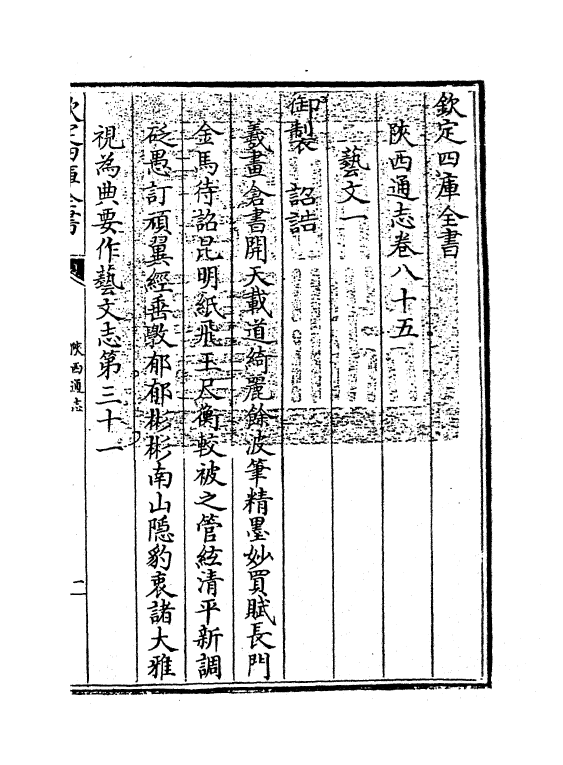 欽定四庫全書
陝西通志卷八十五
藝文一
御製 詔誥
羲畫倉書開天載道綺麗餘波筆精墨妙買賦長門
金馬待詔昆明紙飛玉尺衡較被之管絃清平新調
砭愚訂頑翼經垂斆郁郁彬彬南山隱豹衷諸大雅
視為典要作藝文志第三十一
欽定四庫全書
陝西通志